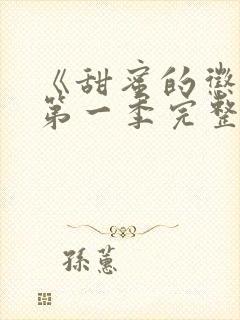 《甜蜜的懲
第一季完整
孫蕙